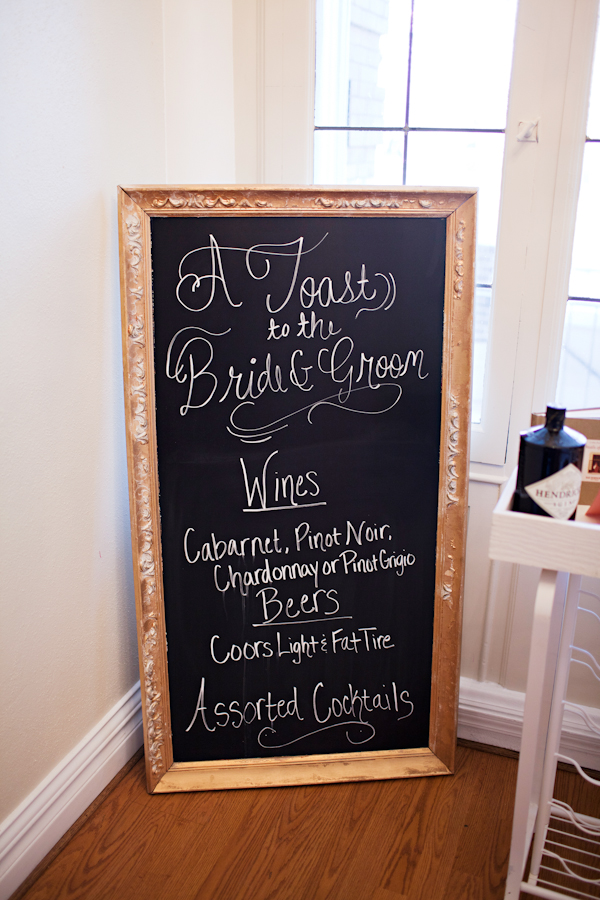 A Toast
to the
Bride & Groom
Wines
Cabarnet, Pinot Noir,
Chardonnay or Pinot Grigio
Beers
Coors Light & Fat Tire
Assorted Cocktails
HENDRICK